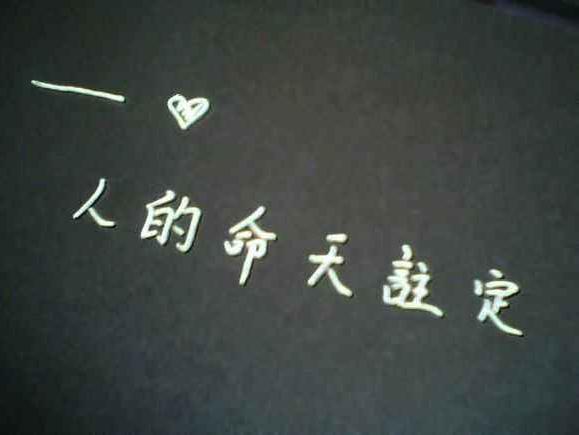 一♡
人的命天註定